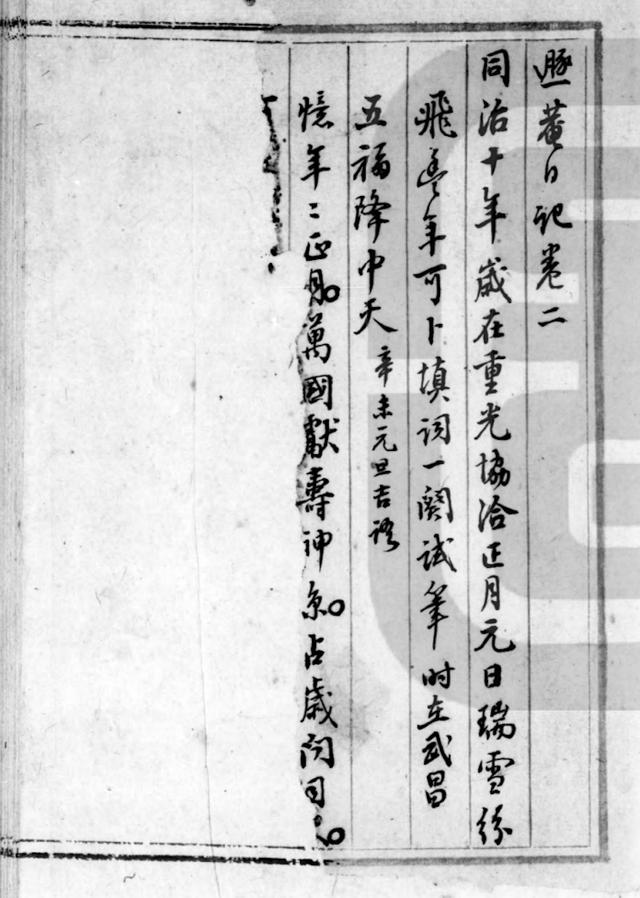 遯菴日記卷二
同治十年歲在重光協洽正月元日瑞雪紛
飛豐年可卜填詞一闋試筆時在武昌
五福降中天 辛未元旦吉語
憶年〻正月。萬國獻壽神京。占歲問同